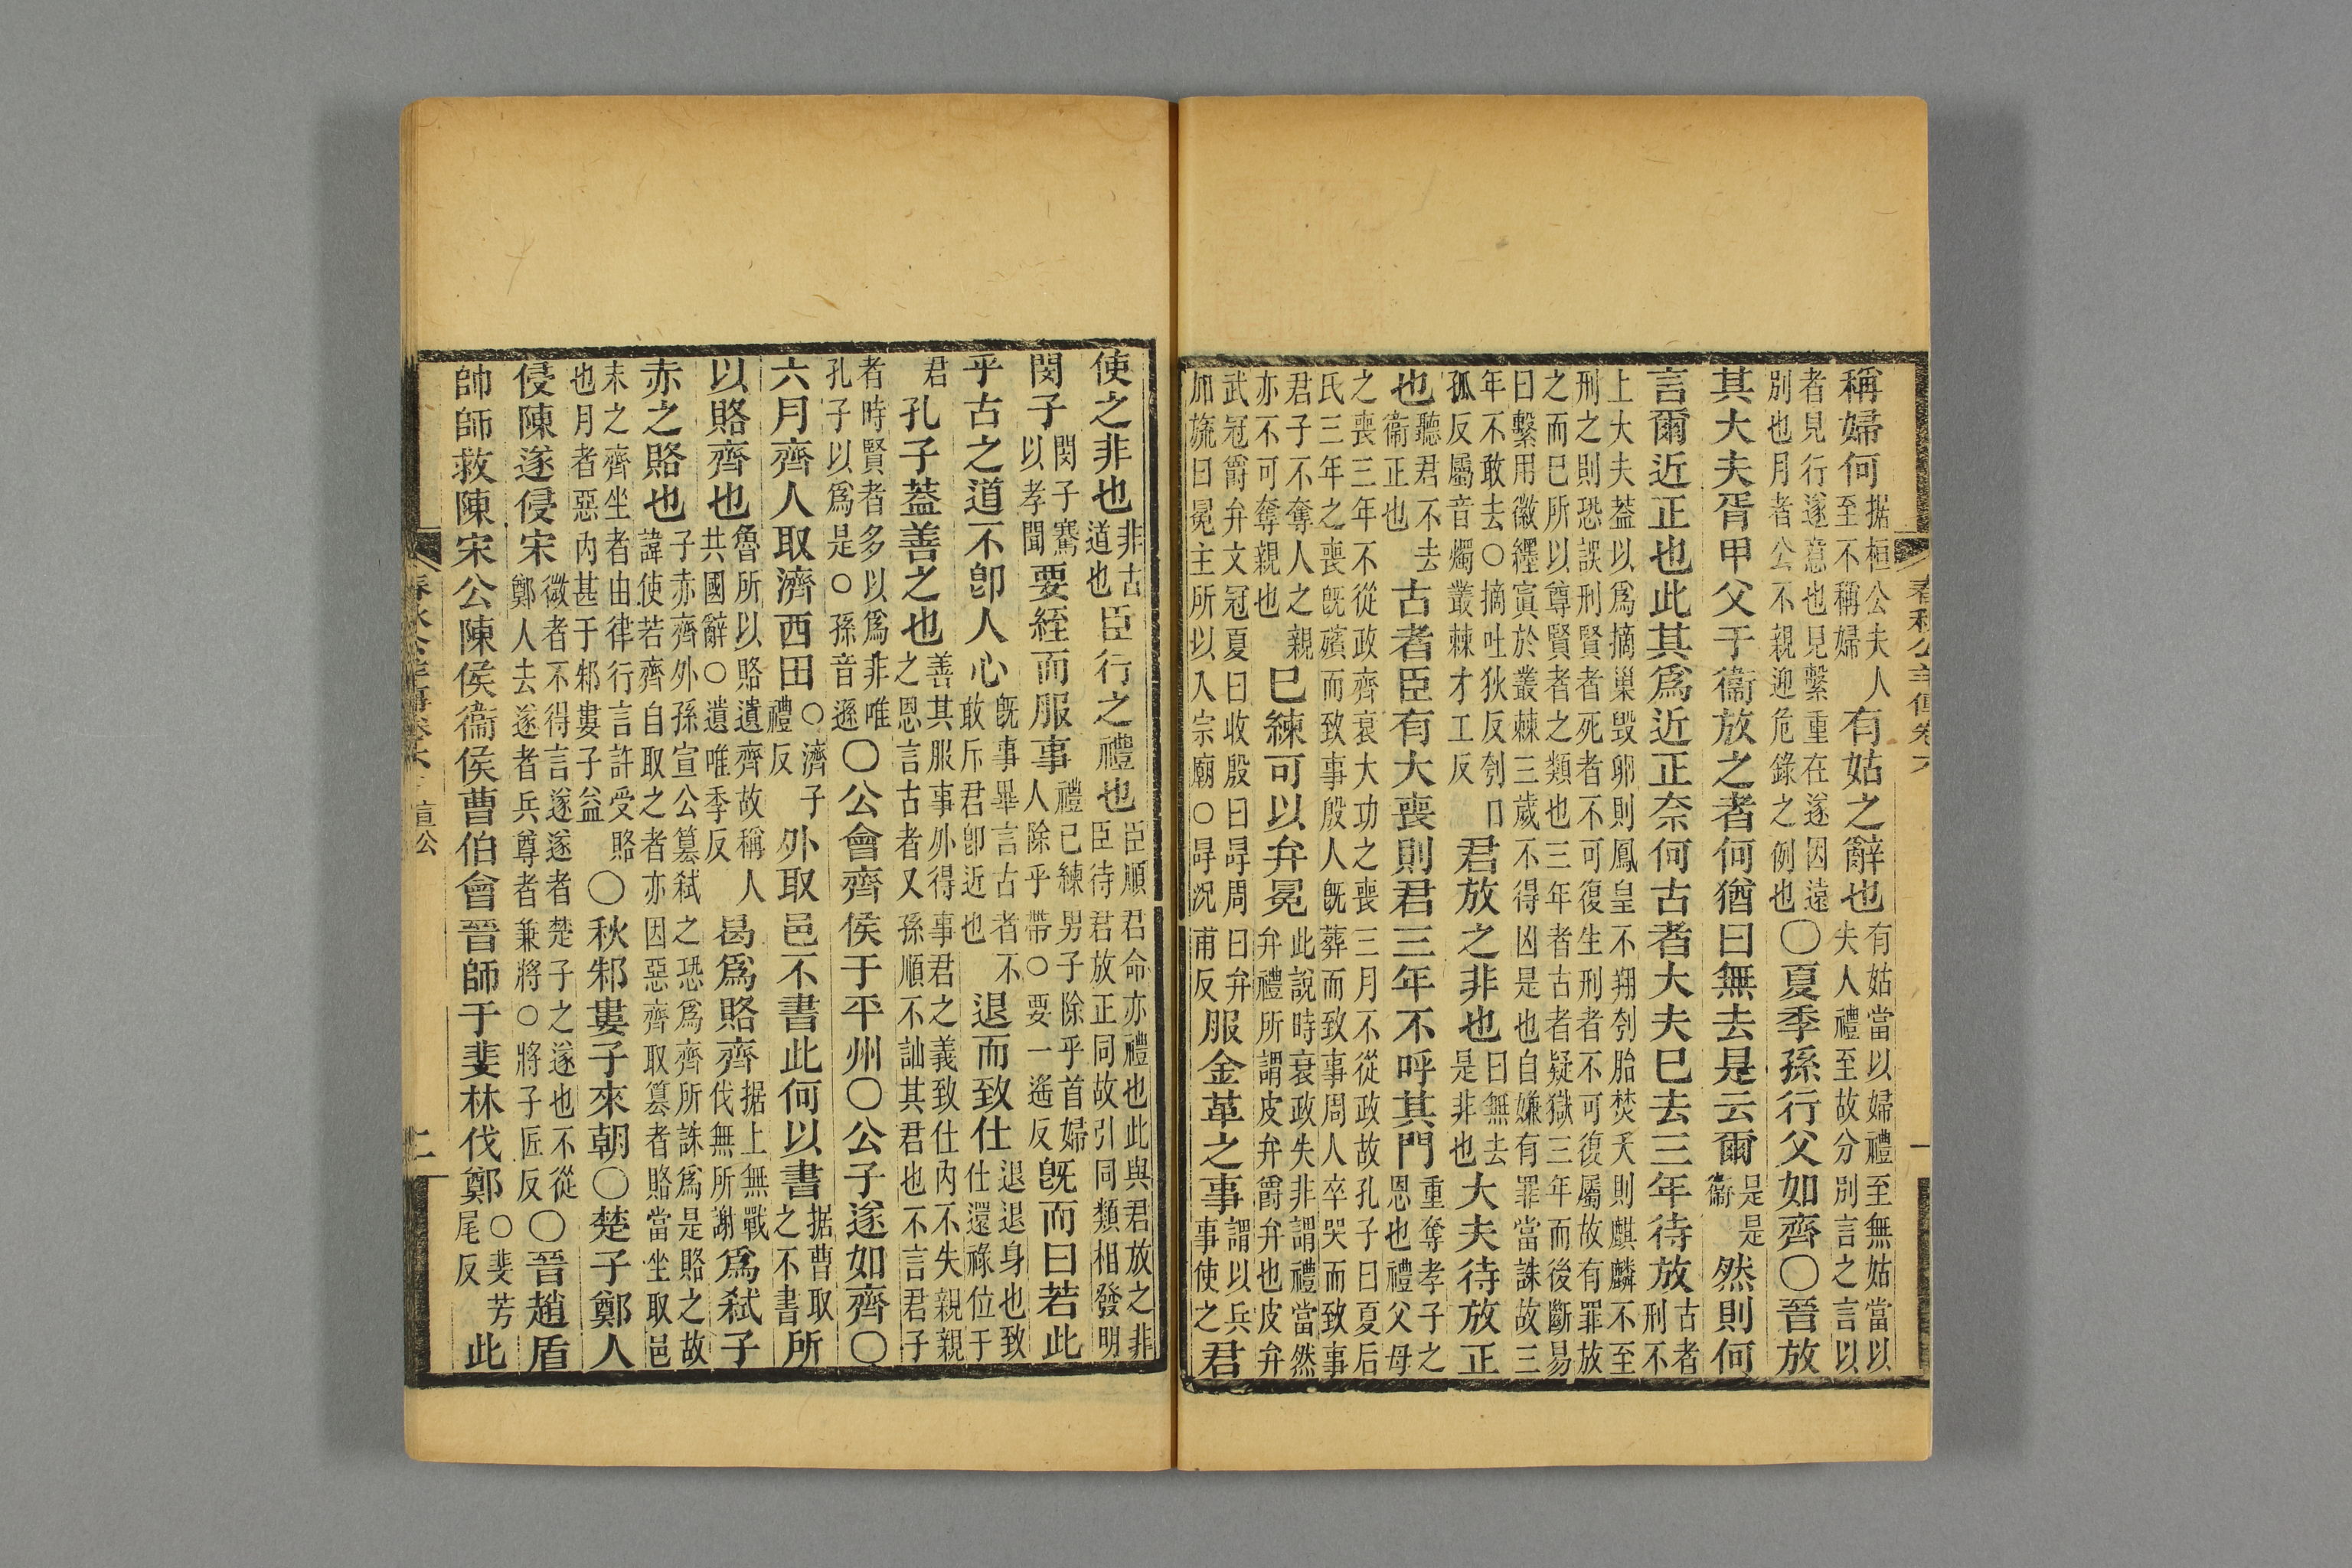 春秋公羊傳卷六
一
稱婦何据桓公夫人至不稱婦有姑之辭也有姑當以婦禮至無姑當以夫人禮至故分別言之言以
者見行遂意也見繫重在遂因遠別也月者公不親迎危錄之例也〇夏季孫行父如齊〇晉放
其大夫胥甲父于衞放之者何猶曰無去是云爾是是衞然則何
言爾近正也此其爲近正奈何古者大夫已去三年待放古者刑不
上大夫蓋以爲摘巢毀卵則鳳皇不翔刳胎焚夭則麒麟不至刑之則恐誤刑賢者死者不可復生刑者不可復屬故有罪放
之而已所以尊賢者之類也三年者古者疑獄三年而後斷易曰繫用徽纆寘於叢棘三歲不得凶是也自嫌有罪當誅故三
年不敢去〇摘吐狄反刳口孤反屬音燭叢棘才工反君放之非也曰無去是非也大夫待放正
也聽君不去衞正也古者臣有大喪則君三年不呼其門重奪孝子之恩也禮父母
之喪三年不從政齊衰大功之喪三月不從政故孔子曰夏后氏三年之喪旣殯而致事殷人旣葬而致事周人卒哭而致事
君子不奪人之親亦不可奪親也已練可以弁冕此說時衰政失非謂禮當然弁禮所謂皮弁爵弁也皮弁
武冠爵弁文冠夏曰收殷曰冔周曰弁加旒曰冕主所以入宗廟〇冔況甫反服金革之事謂以兵事使之君
使之非也非古道也臣行之禮也臣順君命亦禮也此與君放之非臣待君放正同故引同類相發明
閔子閔子騫以孝聞要絰而服事禮已練男子除乎首婦人除乎帶〇要一遙反旣而曰若此
乎古之道不卽人心旣事畢言古者不敢斥君卽近也退而致仕退退身也致仕還祿位于
君孔子蓋善之也善其服事外得事君之義致仕內不失親親之恩言古者又孫順不訕其君也不言君子
者時賢者多以爲非唯孔子以爲是〇孫音遜〇公會齊侯于平州〇公子遂如齊〇
六月齊人取濟西田〇濟子禮反外取邑不書此何以書据曹取之不書所
以賂齊也魯所以賂遺齊故稱人共國辭〇遺唯季反曷爲賂齊据上無戰伐無所謝爲弒子
赤之賂也子赤齊外孫宣公篡弒之恐爲齊所誅爲是賂之故諱使若齊自取之者亦因惡齊取篡者賂當坐取邑
未之齊坐者由律行言許受賂也月者惡內甚于邾婁子益〇秋邾婁子來朝〇楚子鄭人
侵陳遂侵宋微者不得言遂遂者楚子之遂也不從鄭人去遂者兵尊者兼將〇將子匠反〇晉趙盾
帥師救陳宋公陳侯衞侯曹伯會晉師于斐林伐鄭〇斐芳尾反此
春秋公羊傳卷六 宣公
二